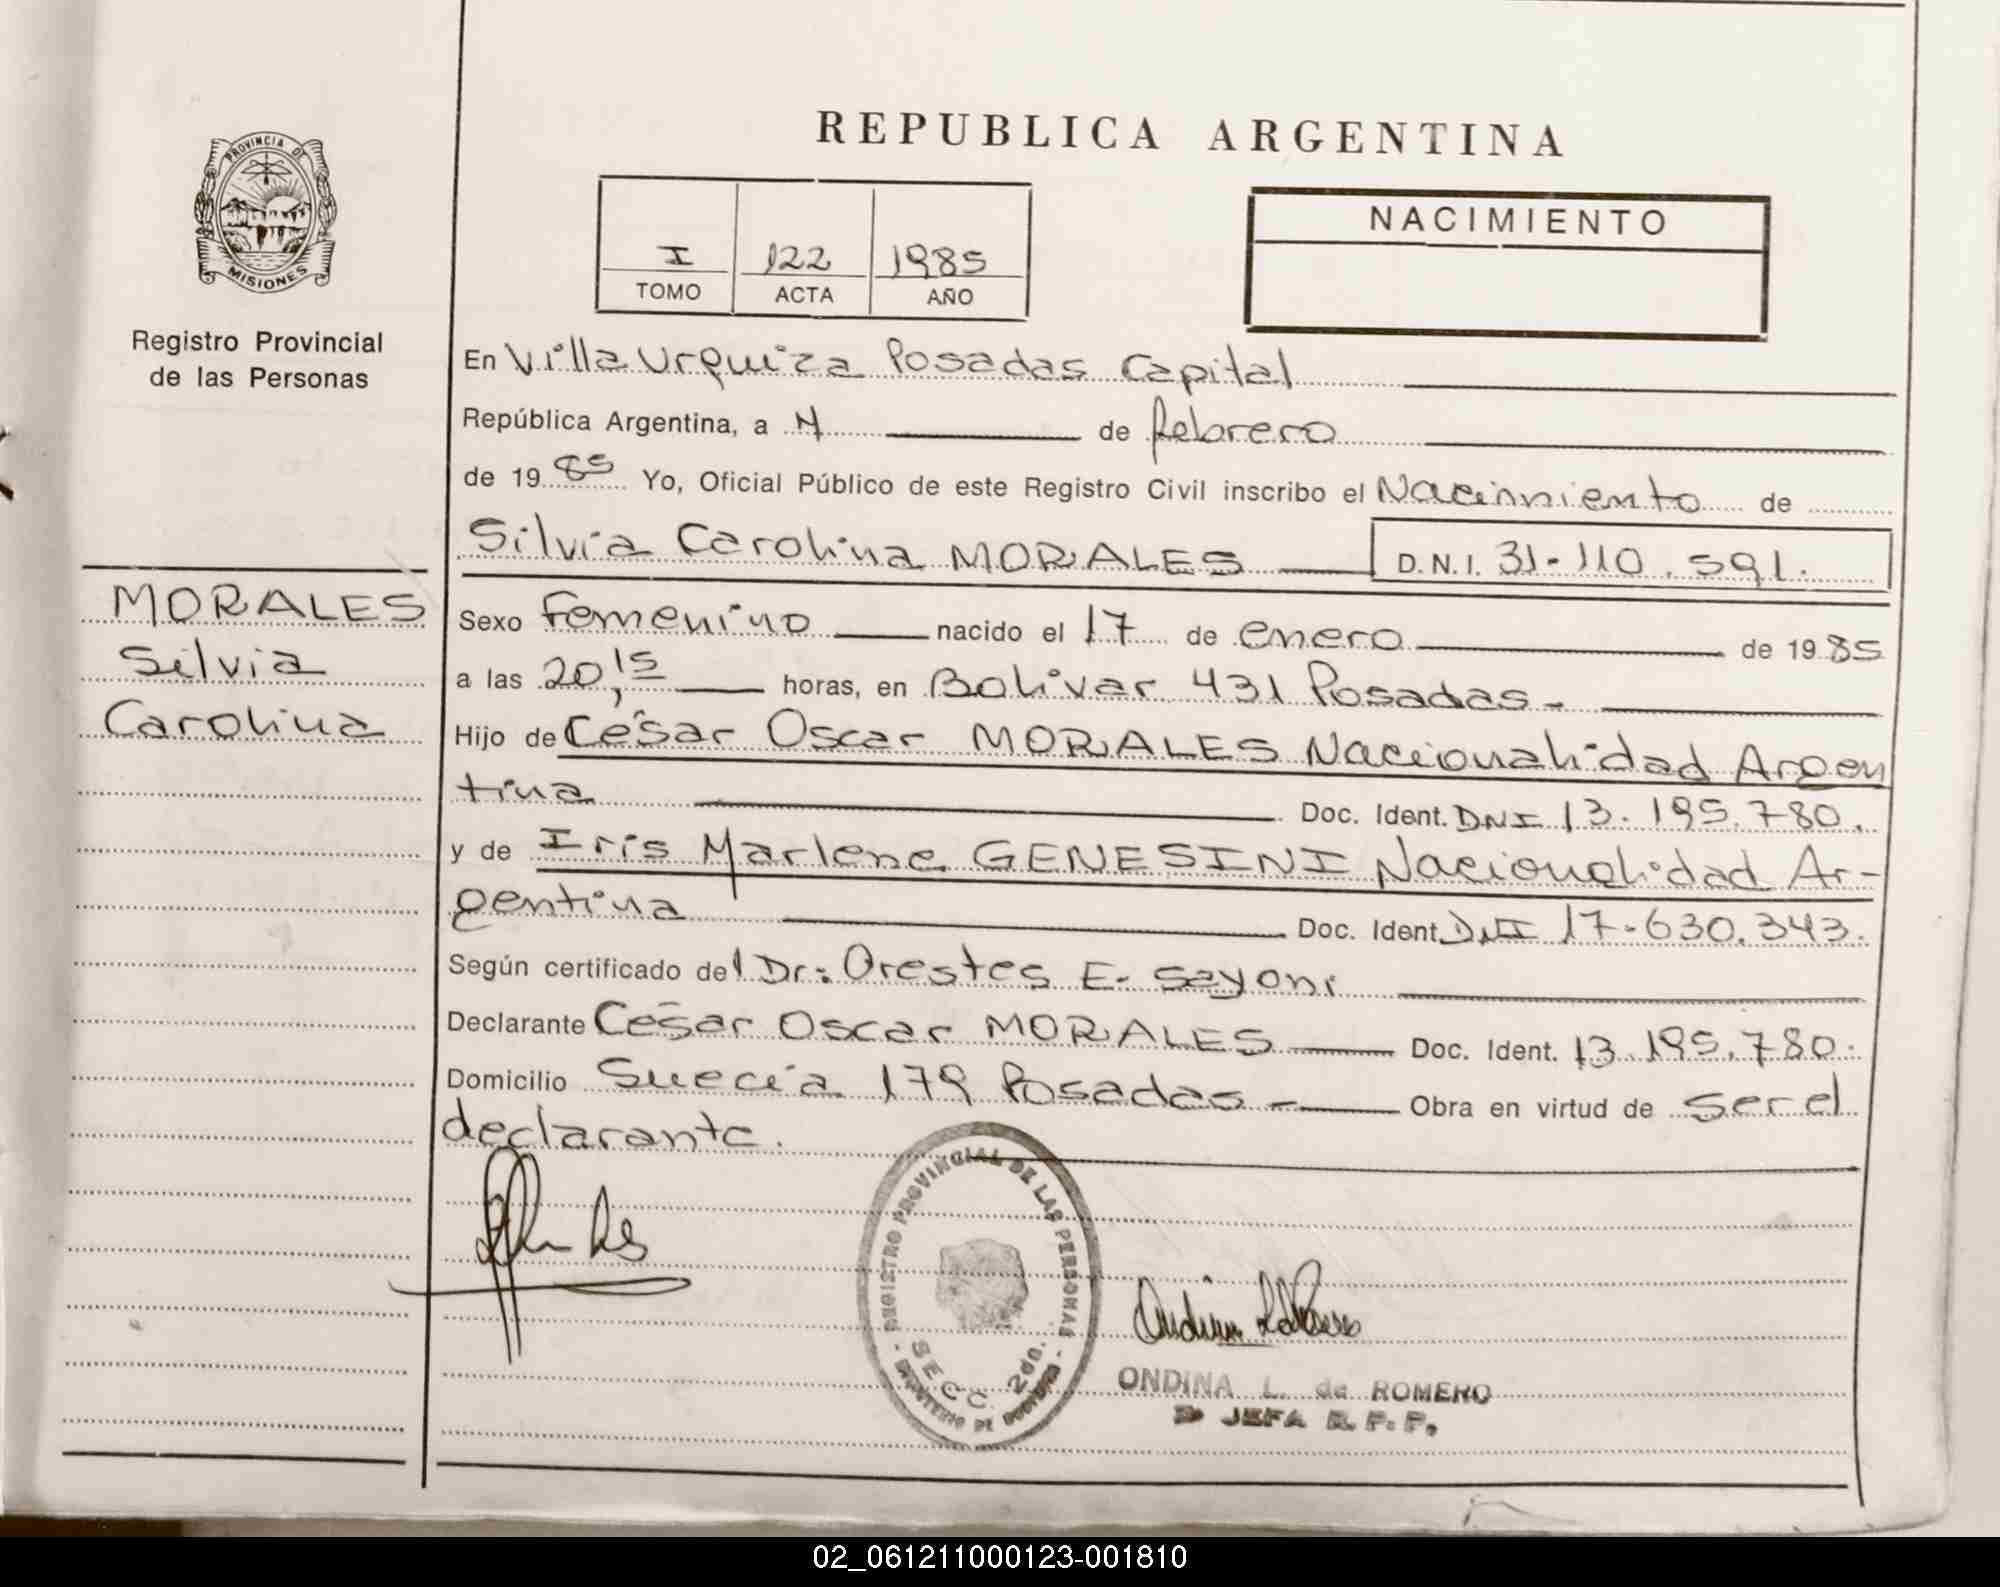 REPUBLICA ARGENTINA
PROVINCIA DE
MISIONES
Registro Provincial
de las Personas
I 122 1985
TOMO ACTA AÑO
NACIMIENTO
En Villa Urquiza Posadas Capital
República Argentina, a de febrero
de 1985 Yo, Oficial Público de este Registro Civil inscribo el Nacimiento de
Silvia Carolina MORALES D.N.I. 31-110.591.
MORALES
Silvia
Carolina
Sexo Femenino nacido el 17 de enero de 1985
a las 20,15 horas, en Bolivar 431 Posadas-
Hijo de César Oscar MORALES Nacionalidad Argen
tina Doc. Ident. DNI 13.195.780.
y de Iris Marlene GENESINI Nacionalidad Ar-
gentina Doc. Ident. DNI 17-630.343.
Según certificado del Dr.: Orestes E. Sayoni
Declarante César Oscar MORALES Doc. Ident. 13.195.780.
Domicilio Suecia 179 Posadas- Obra en virtud de ser el
declarante.
REGISTRO PROVINCIAL DE LAS PERSONAS
SECC. 2da.
ONDINA L. de ROMERO
JEFA R.P.P.
02_061211000123-001810